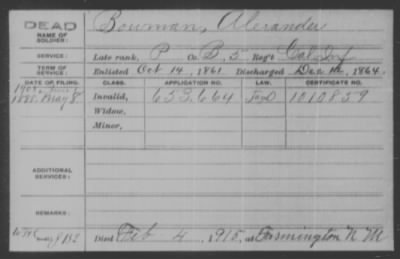 DEAD
NAME OF SOLDIER:
Bowman, Alexander
SERVICE:
Late rank, P Co. B, 5 Reg't Cal. Inf
TERM OF SERVICE:
Enlisted Oct 14, 1861. Discharged Dec 12, 1864.
DATE OF FILING. CLASS. APPLICATION NO. LAW. CERTIFICATE NO.
May 8 Invalid, 653.664 1010859
Widow,
Minor,
ADDITIONAL SERVICES:
REMARKS:
Died Feb 4, 1915, at Farmington N M